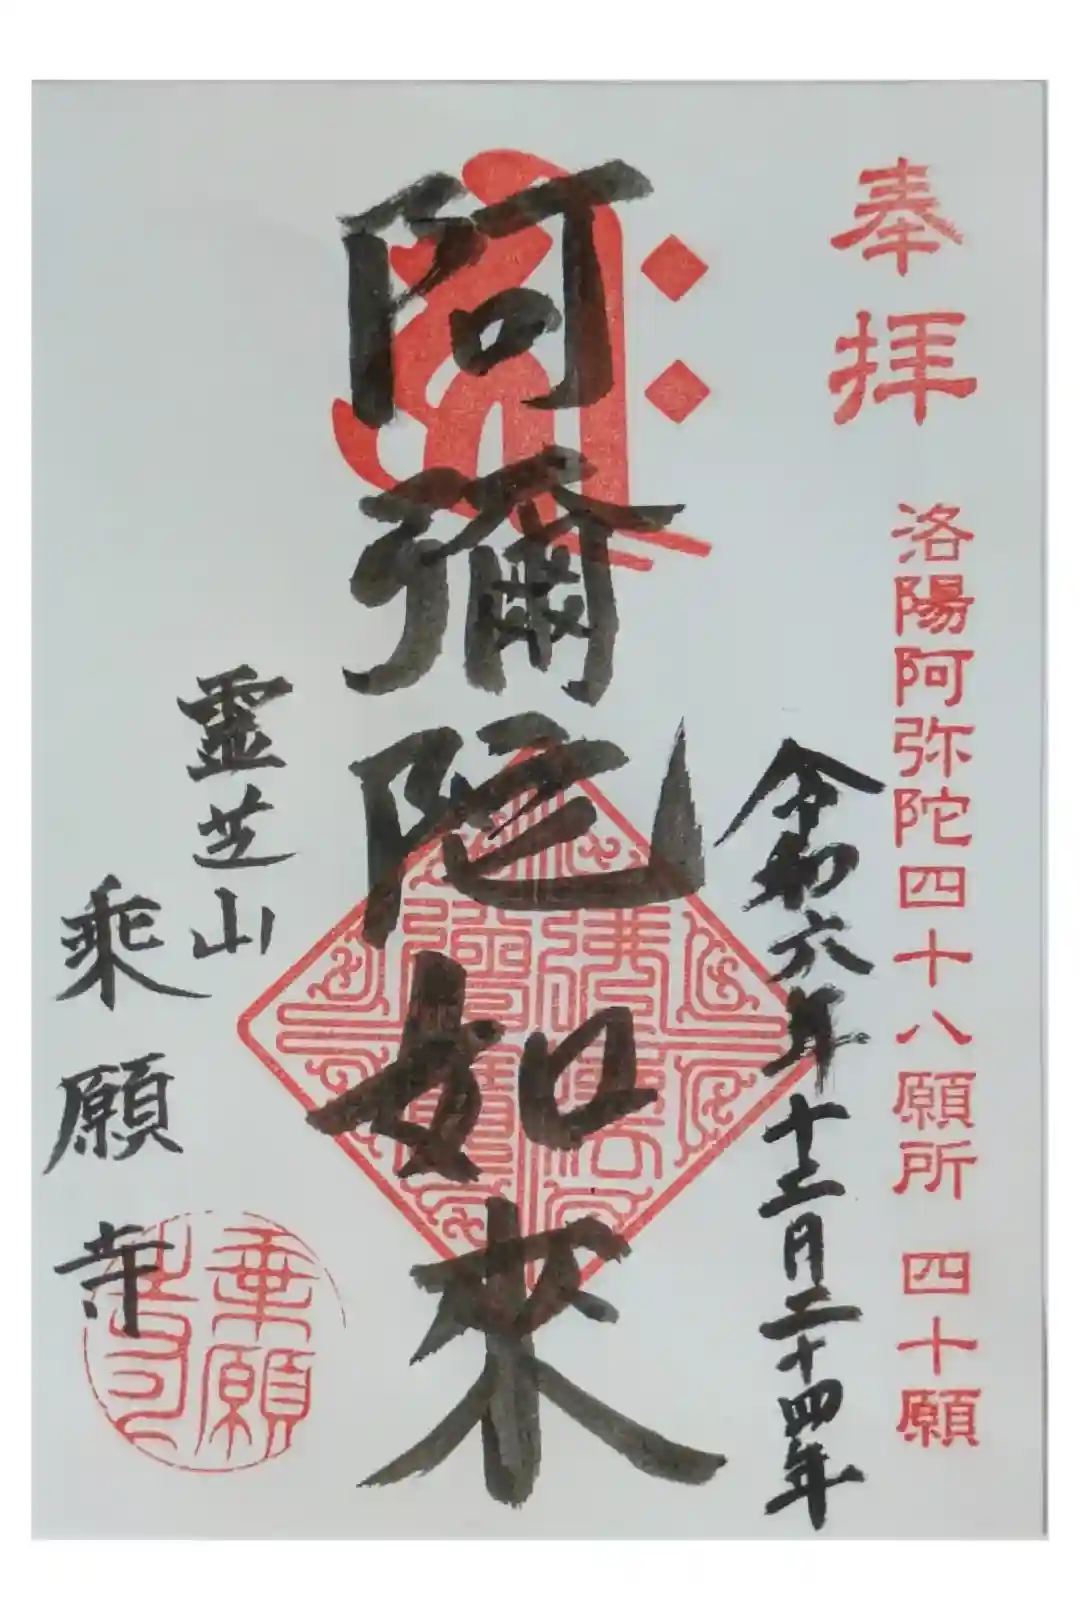 奉拝
洛陽阿弥陀四十八願所 四十願
令和六年十二月二十四年
阿彌陀如来
霊芝山
乘願寺